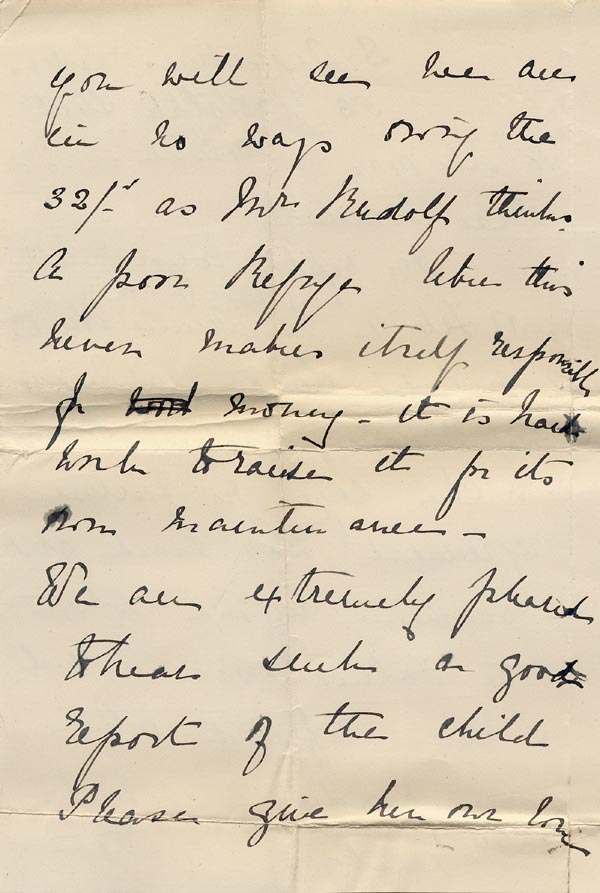 you will see here are
in no ways owing the
32/- as Mr Rudolf thinks.
A poor Refuge like this
never makes itself responsible
for money - it is hard
work to raise it for its
own maintenance -
We are extremely pleased
to hear such a good
report of the child
Please give her our love